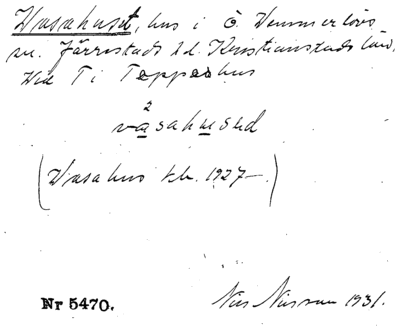 Wasahuset, hus i Ö Vemmerlövs
sn. Järrestads hd. Kristianstads län.
Vid T i Teppeshus
2
vasahused
(Wasahus kb. 1927-)
Nr 5470.
Nils Nilsson 1931.